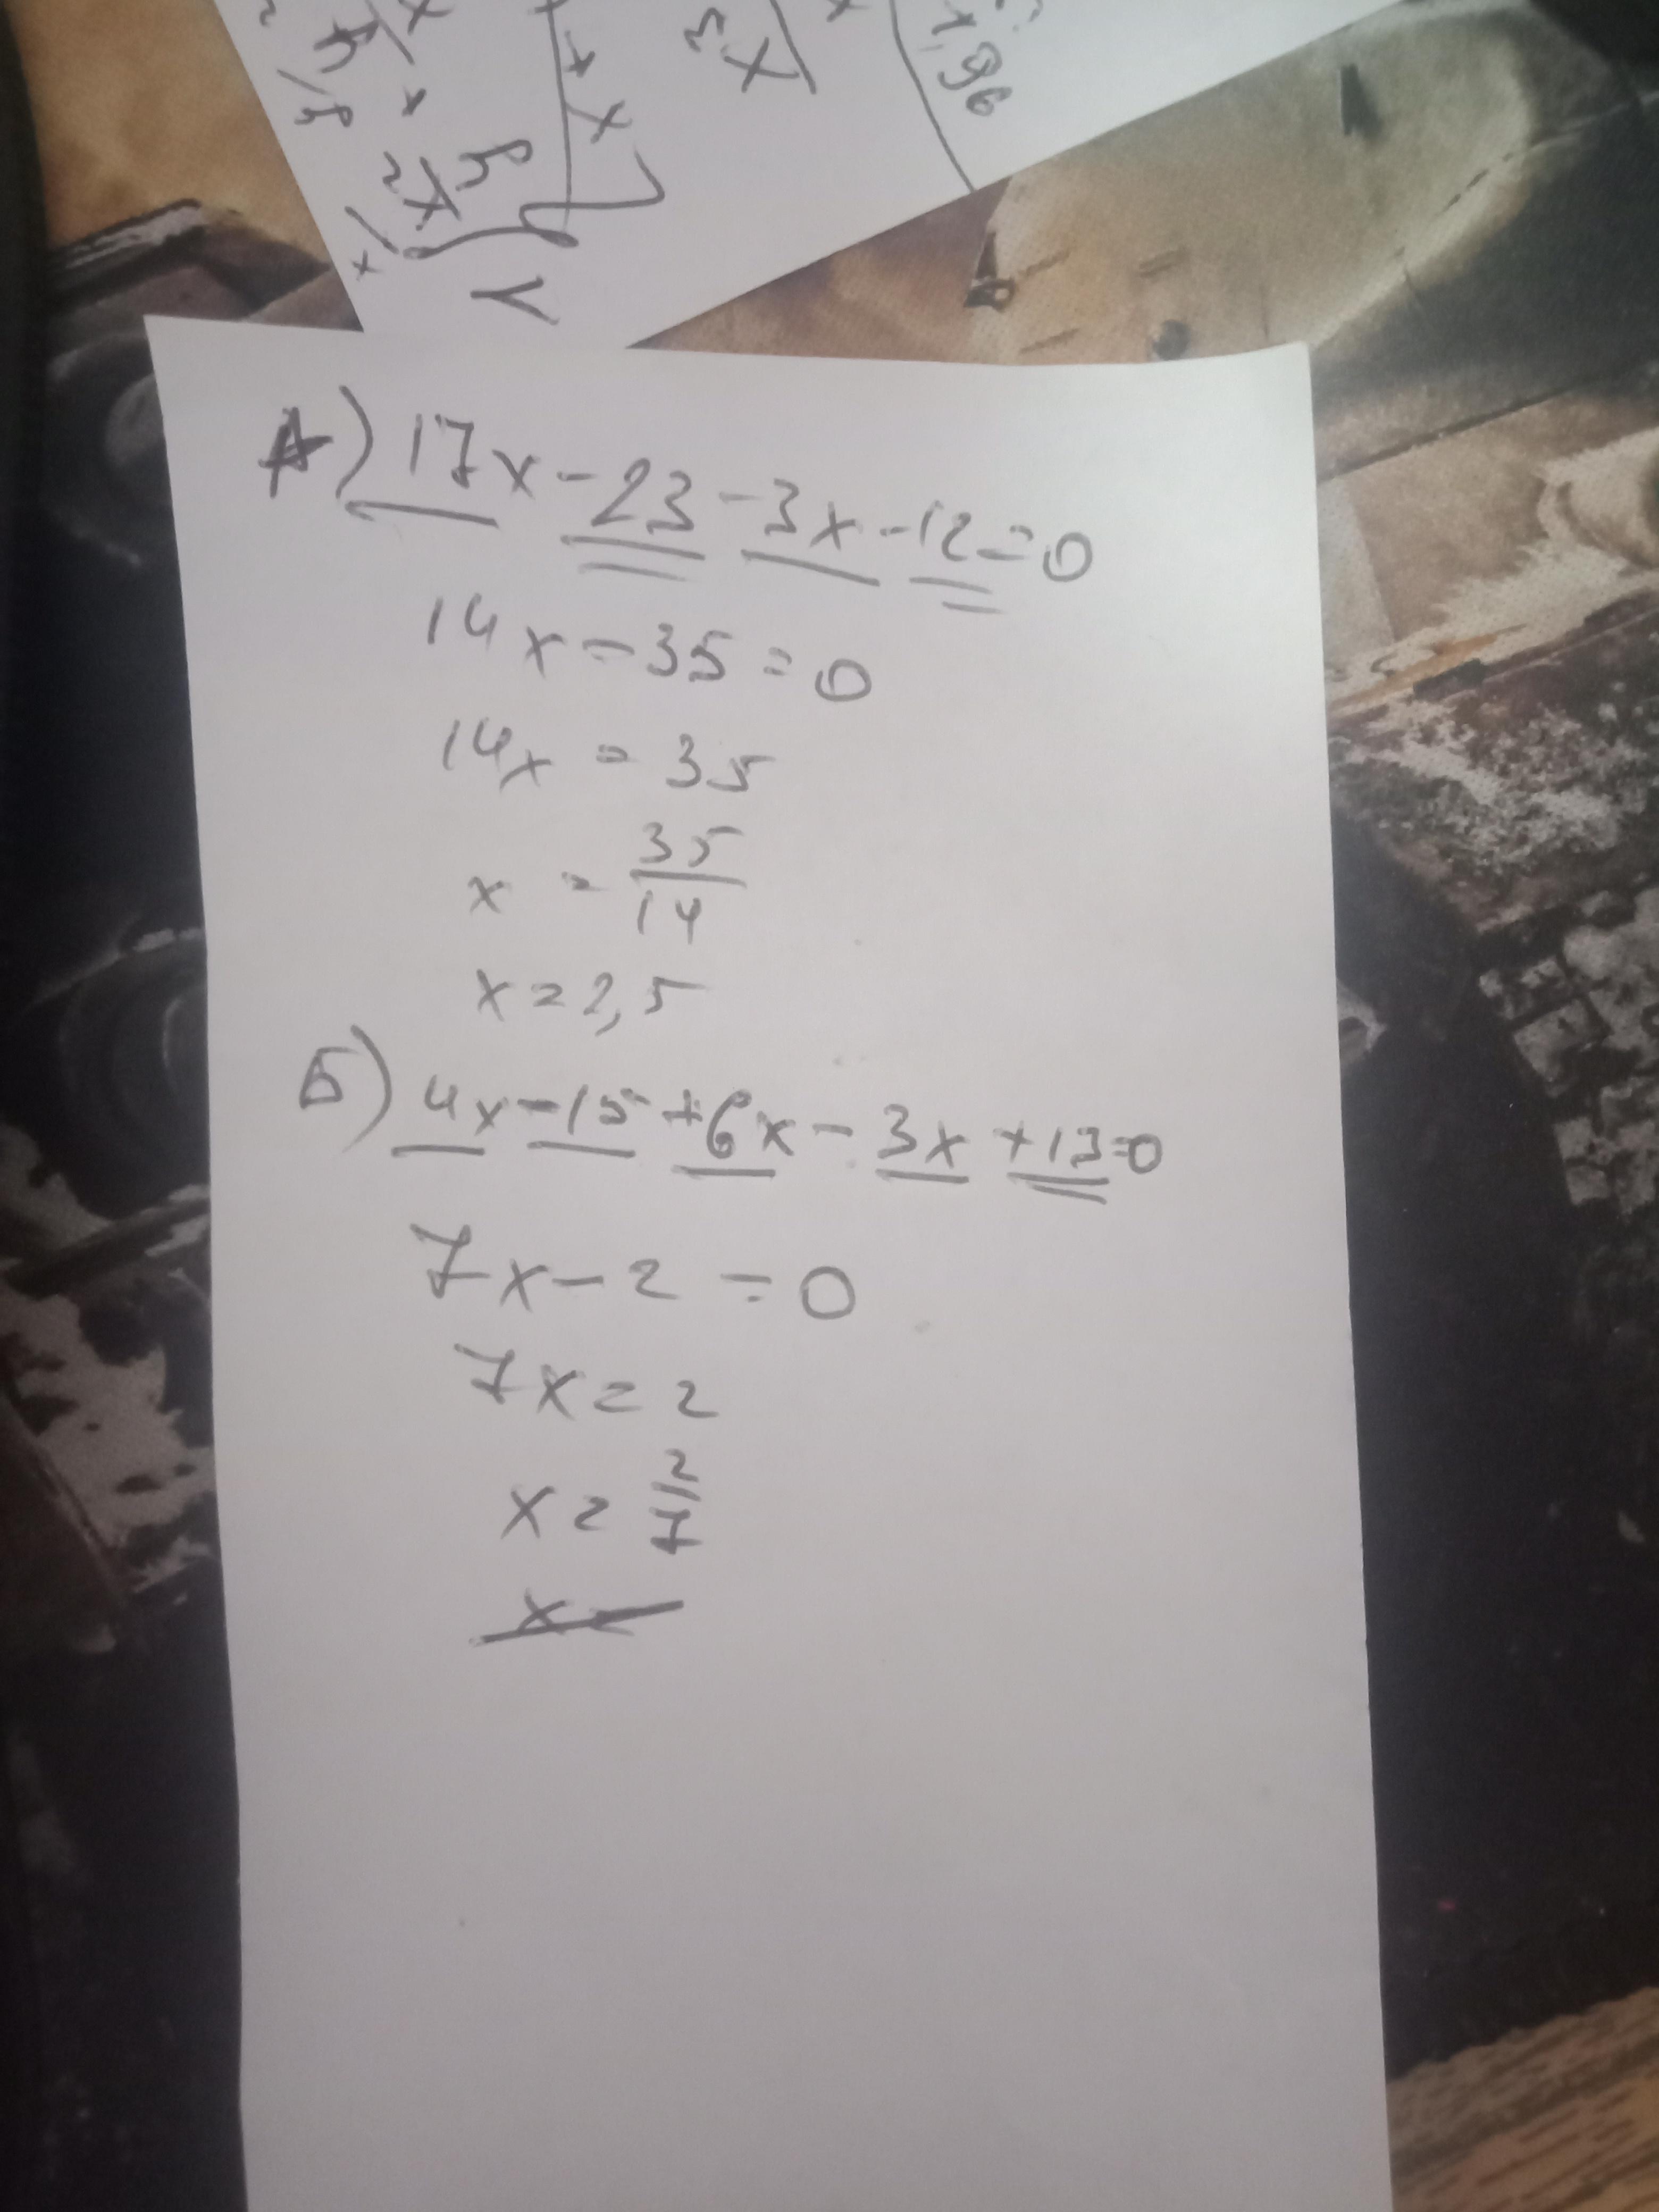 1,96
А) 17x - 23 - 3x - 12 = 0
14x - 35 = 0
14x = 35
x = 35/14
x = 2,5
Б) 4x - 15 + 6x - 3x + 13 = 0
7x - 2 = 0
7x = 2
x = 2/7
x =